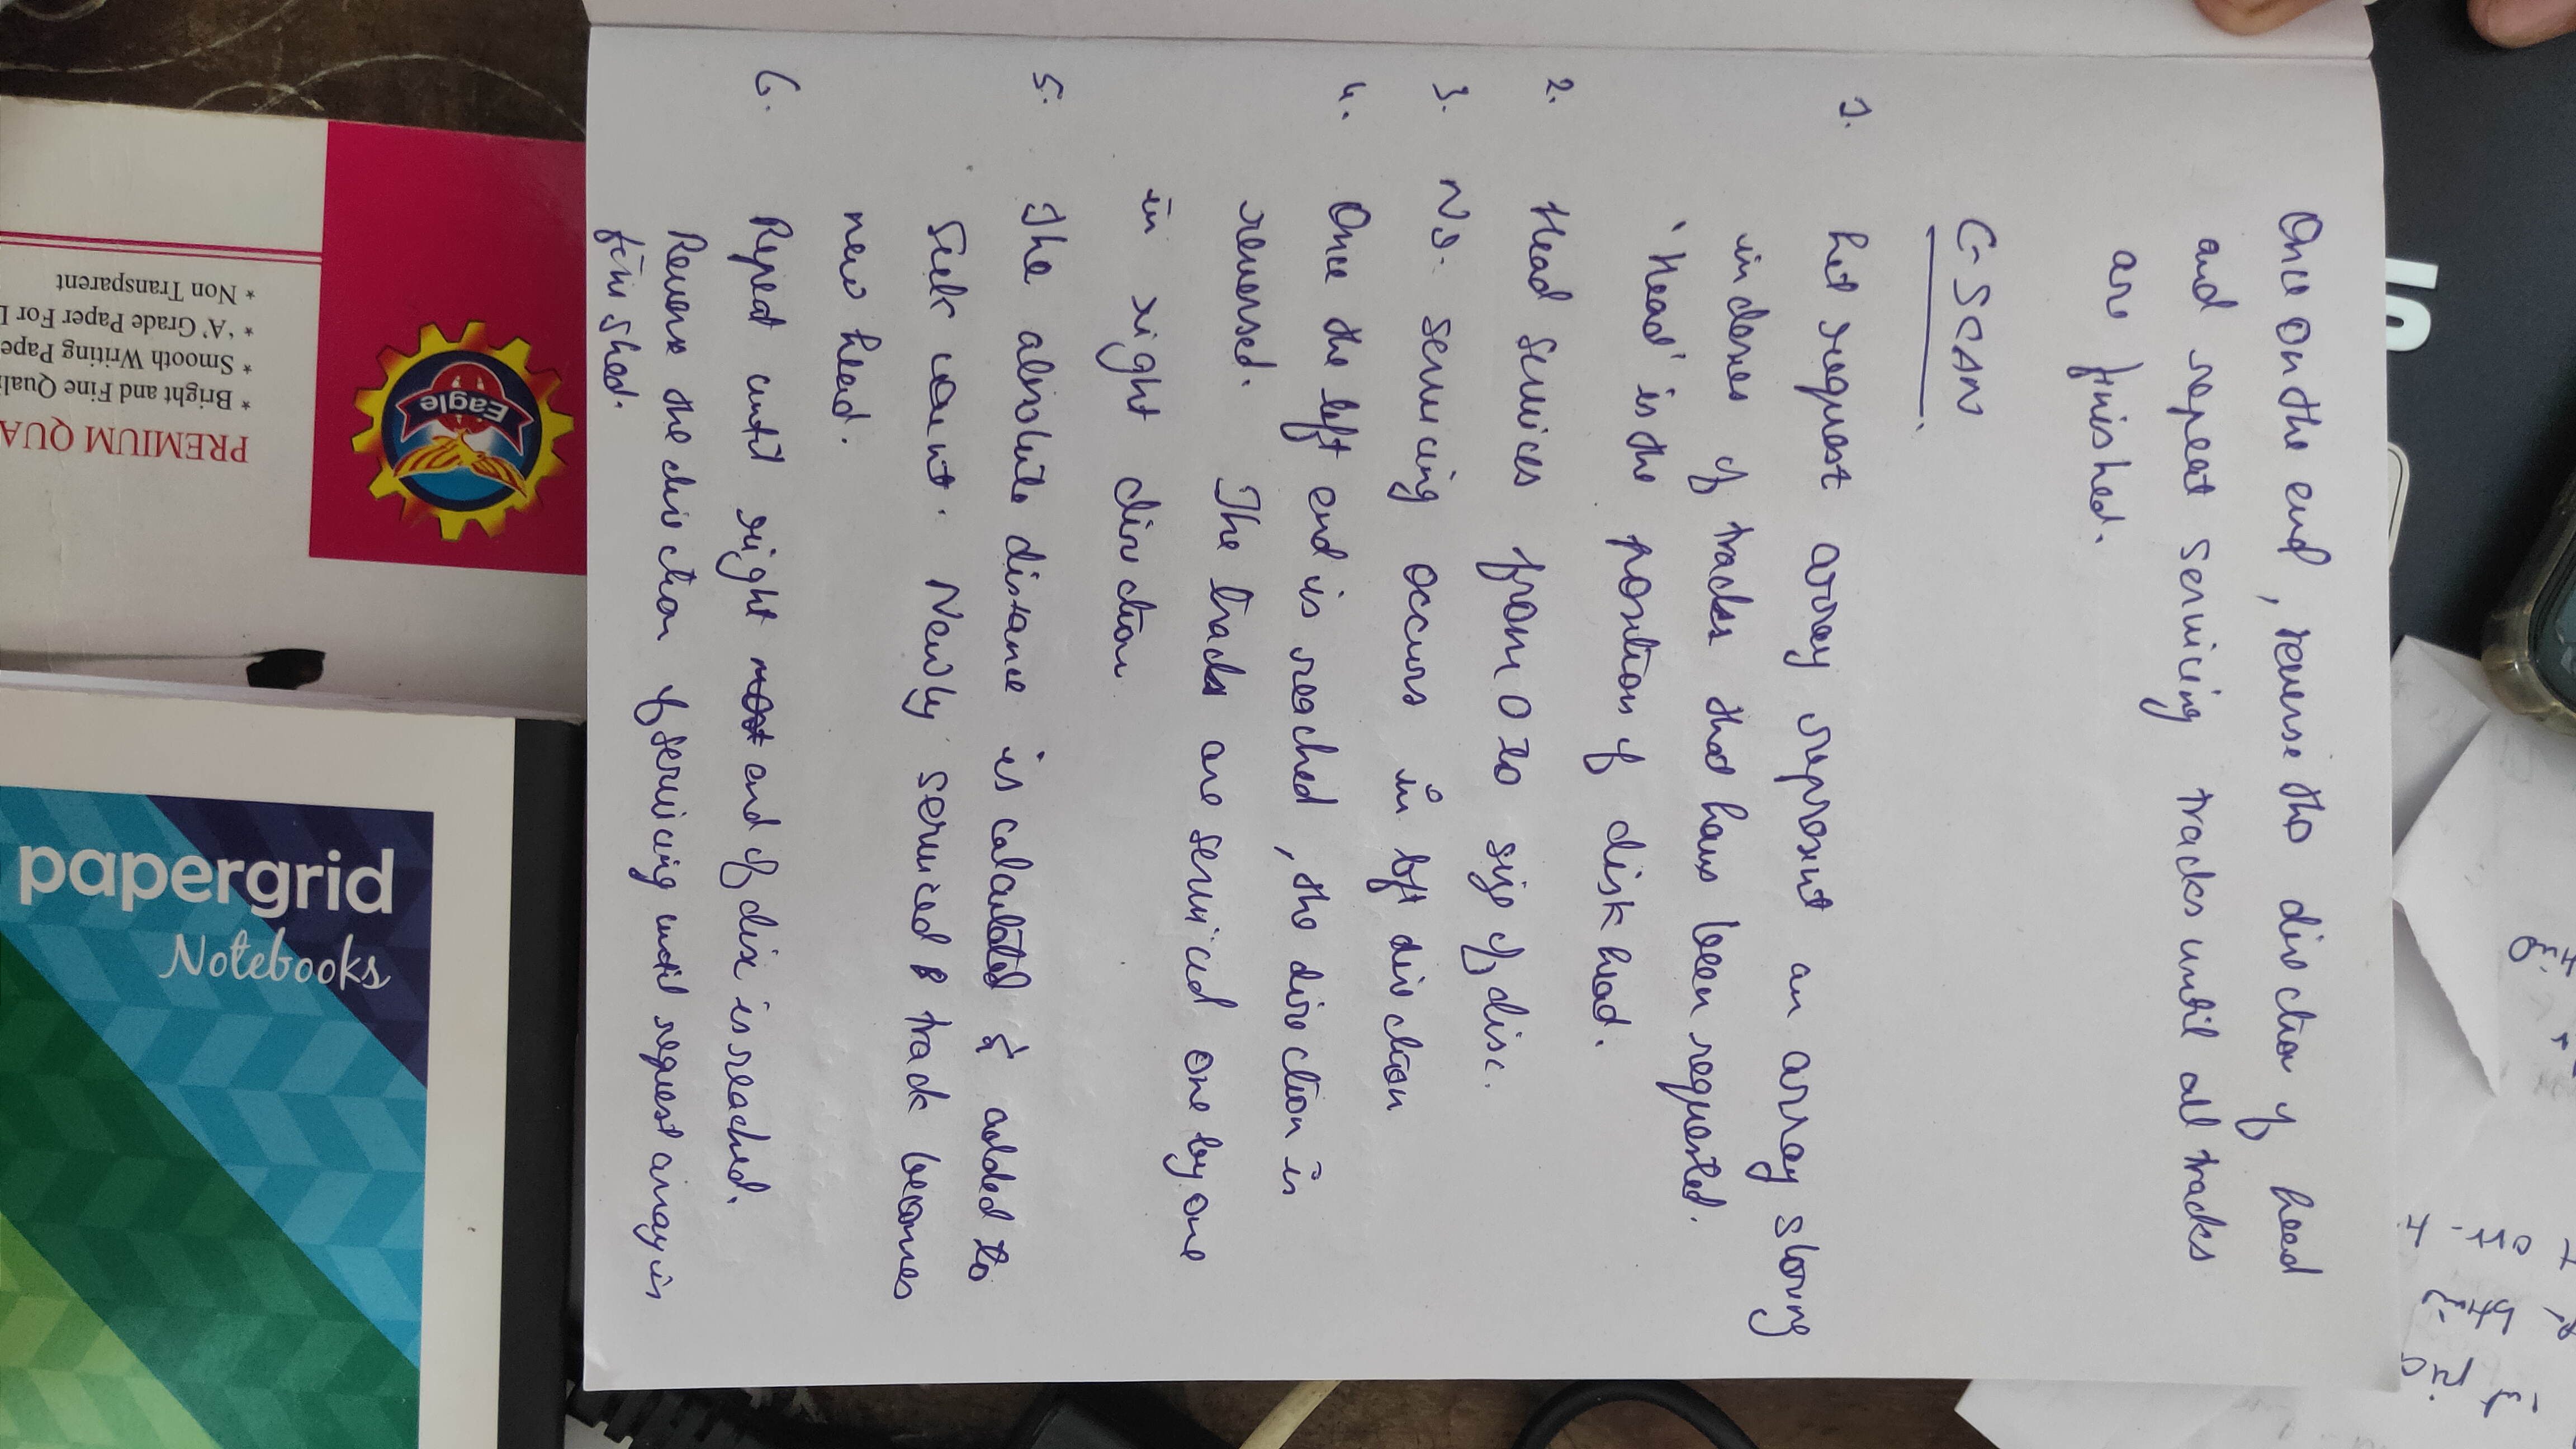 Once on the end, reverse the direction of head
and repeat servicing tracks until all tracks
are finished.
C-SCAN
1. Let request array represent an array storing
indexes of tracks that have been requested.
'Head' is the position of disk head.
2. Head services from 0 to size of disc.
3. No. servicing occurs in left direction
4. Once the left end is reached, the direction is
reversed. The tracks are serviced one by one
in right direction
5. The absolute distance is calculated & added to
seek count. Newly serviced track becomes
new head.
6. Repeat until right end of disk is reached.
Reverse the direction of servicing until request array is
finished.
Eagle
PREMIUM QUA
* Bright and Fine Quali
* Smooth Writing Pape
* 'A' Grade Paper For
* Non Transparent
papergrid
Notebooks